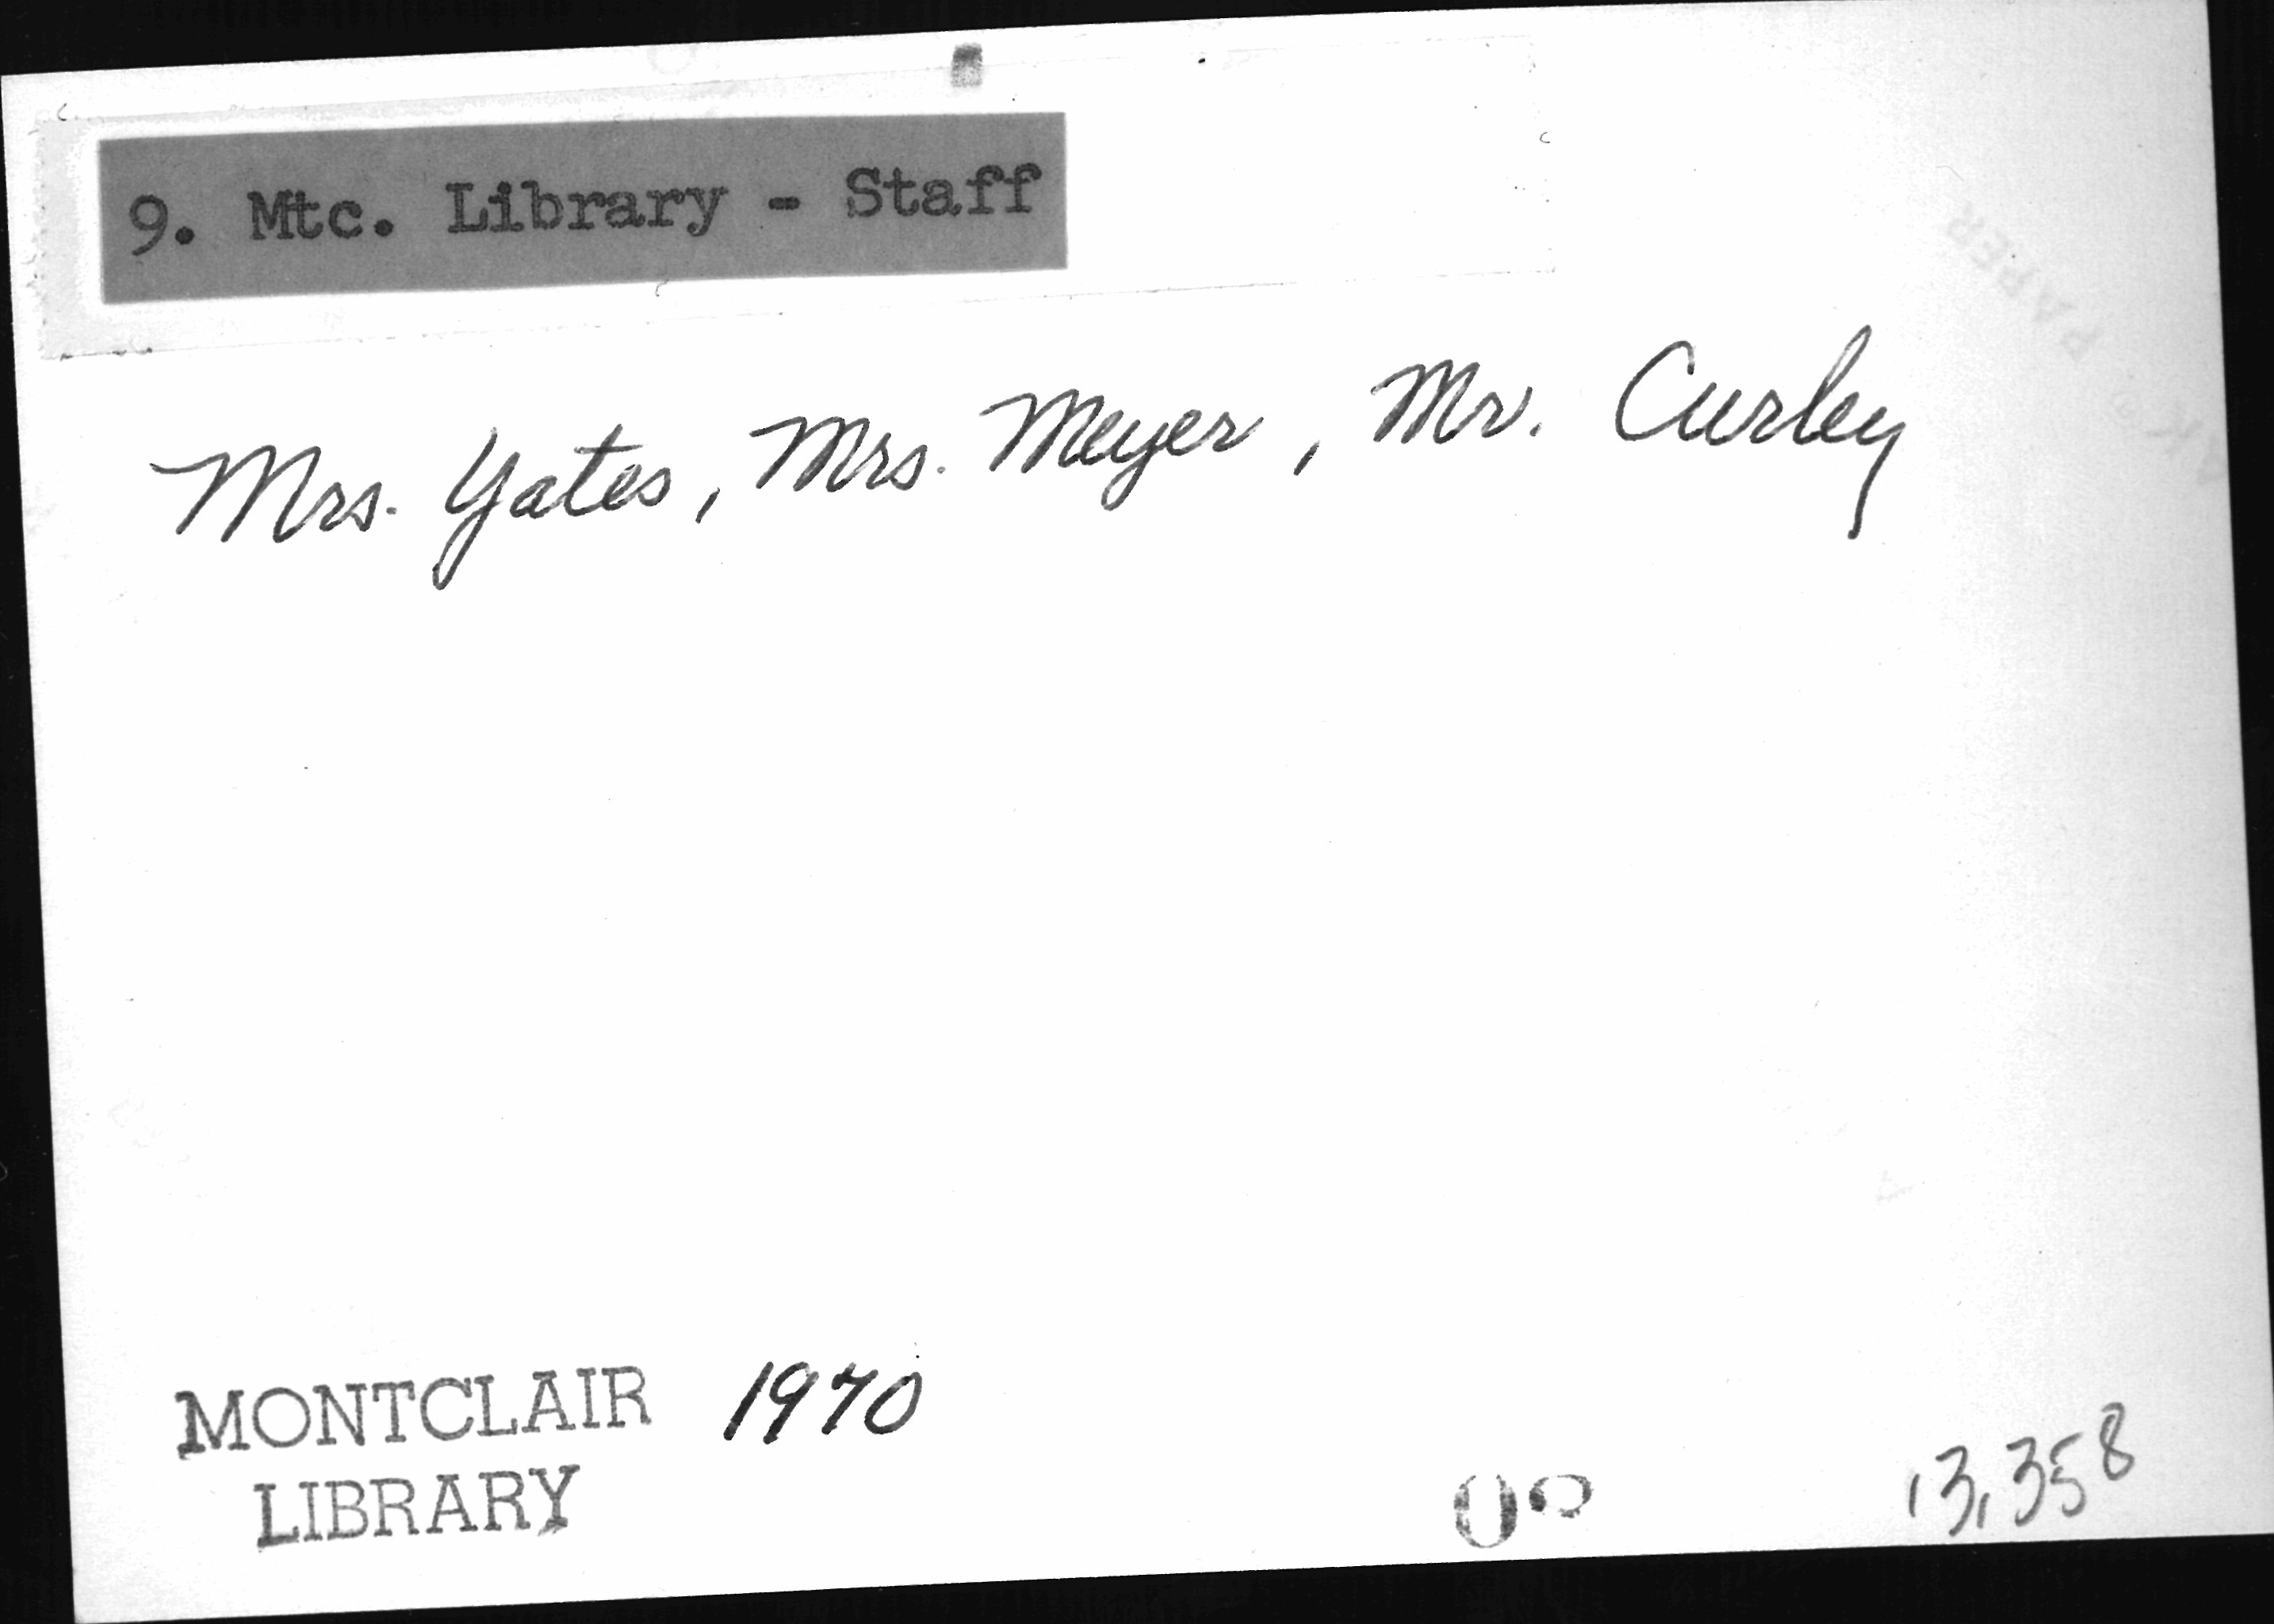 9. Mtc. Library - Staff
Mrs. Yates, Mrs. Meyer, Mr. Curley
MONTCLAIR 1970
LIBRARY
13,358